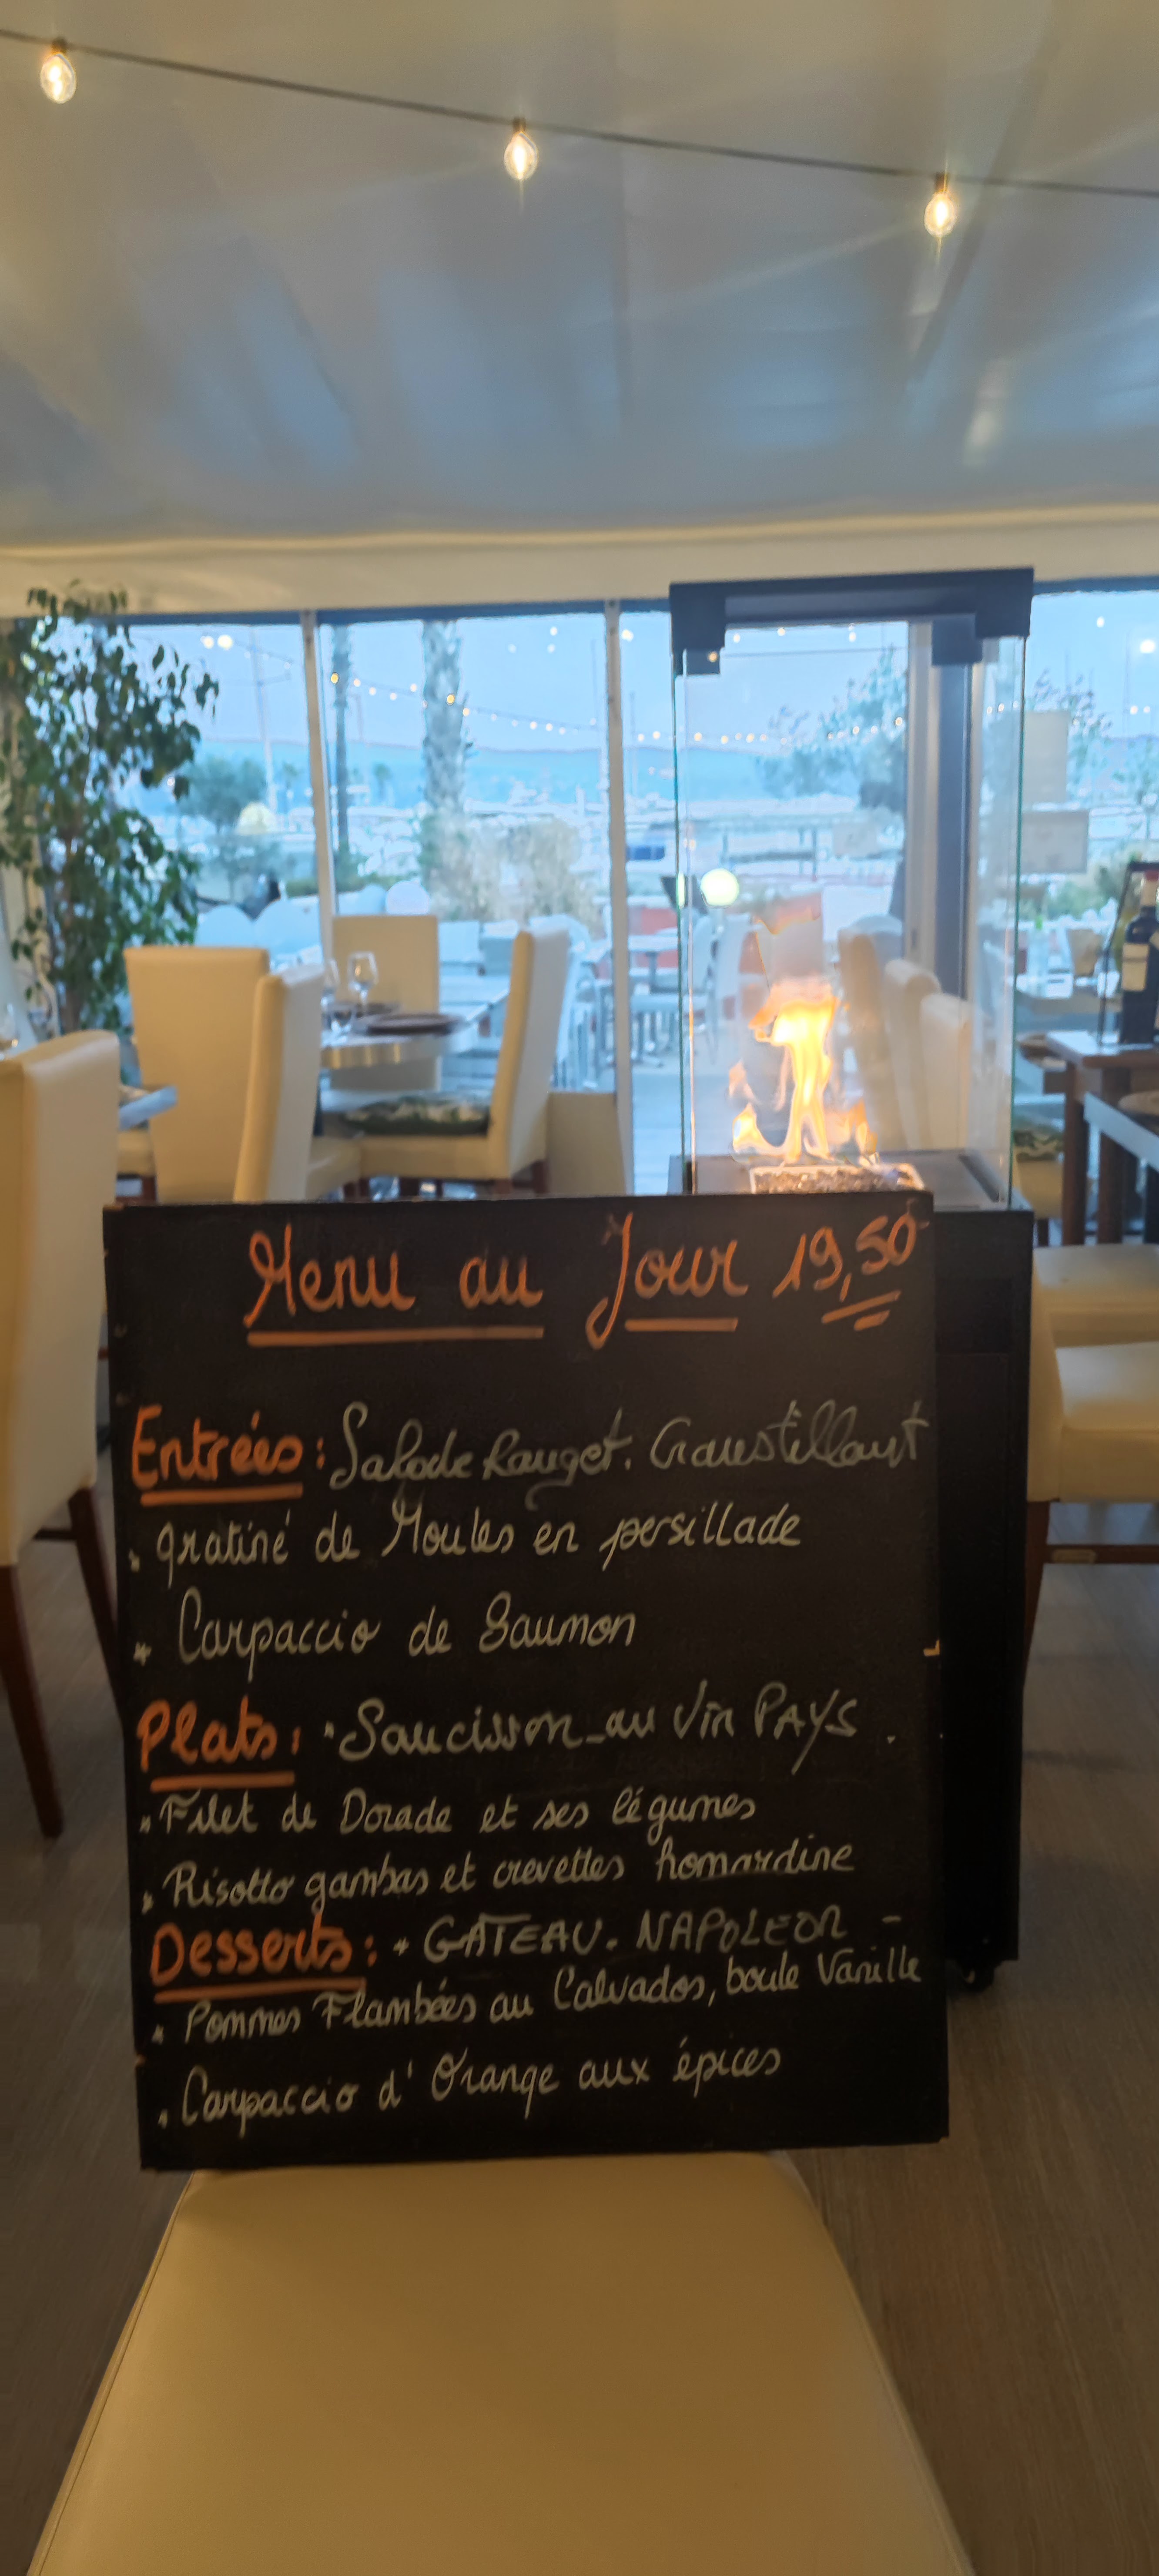 Menu au Jour 19,50
Entrées : Salade Rouget. Croustillant
* gratiné de Moules en persillade
* Carpaccio de Saumon
Plats : * Saucisson au Vin PAYS.
* Filet de Dorade et ses légumes
* Risotto gambas et crevettes homardine
Desserts : * GATEAU. NAPOLEON -
* Pommes Flambées au Calvados, boule Vanille
* Carpaccio d'Orange aux épices